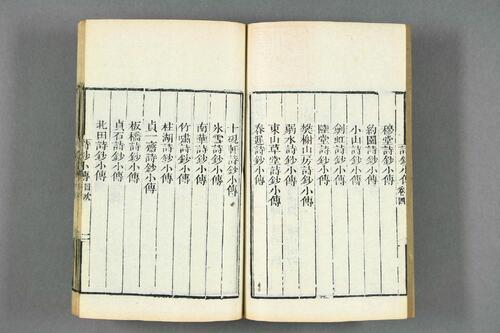 詩鈔小傳 卷四
穆堂詩鈔小傳
約園詩鈔小傳
小山詩鈔小傳
劍虹詩鈔小傳
陸堂詩鈔小傳
樊榭山房詩鈔小傳
弱水詩鈔小傳
東山草堂詩鈔小傳
春遲詩鈔小傳
十硯軒詩鈔小傳
氷雪詩鈔小傳
南華詩鈔小傳
竹嘯詩鈔小傳
桂湖詩鈔小傳
貞一齋詩鈔小傳
板橋詩鈔小傳
貞石詩鈔小傳
北田詩鈔小傳
詩鈔小傳目次